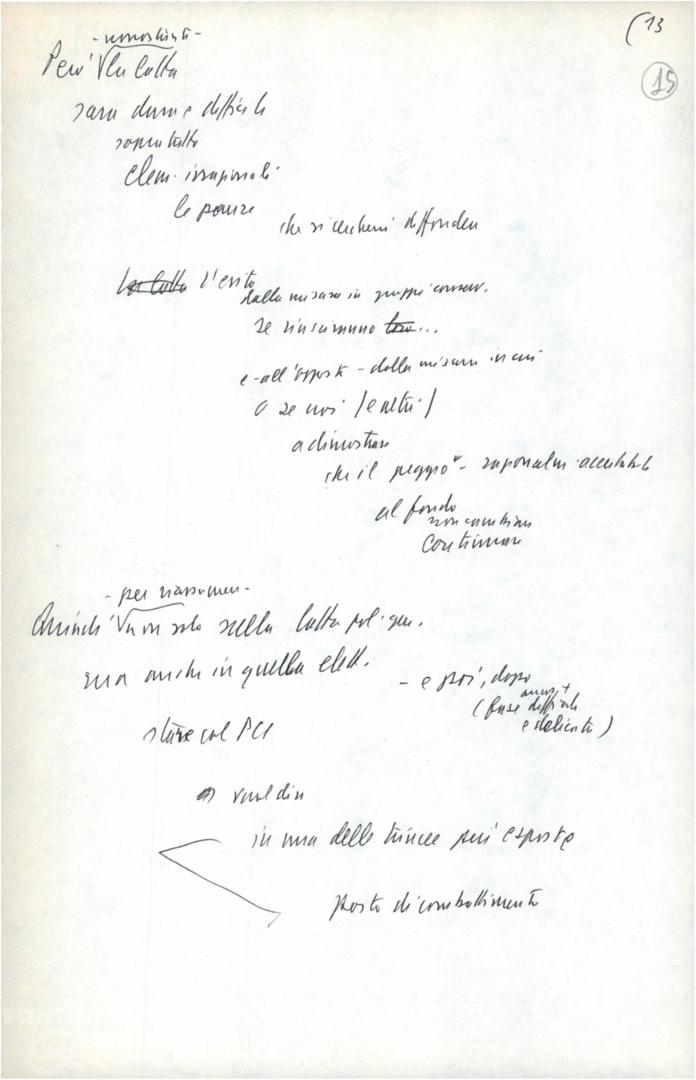 (13
15
- nonostante -
Però la lotta
sarà dura e difficile
soprattutto
elem. irrazionali
le paure
che si cercherà diffonder
la lotta l'esito
dalla misura in gruppi conserv.
se riusciranno
e - all'opposto - dalla misura in cui
o se noi / e altri /
a dimostrare
che il peggio - razionalm. accettabile
al fondo
continuare
- per riassumere -
Quindi non solo nella lotta pol. gen.
ma anche in quella elett.
- e poi, dopo
(fase difficile
e delicata)
stare col PCI
vuol dire
in una delle trincee più esposte
posto di combattimento